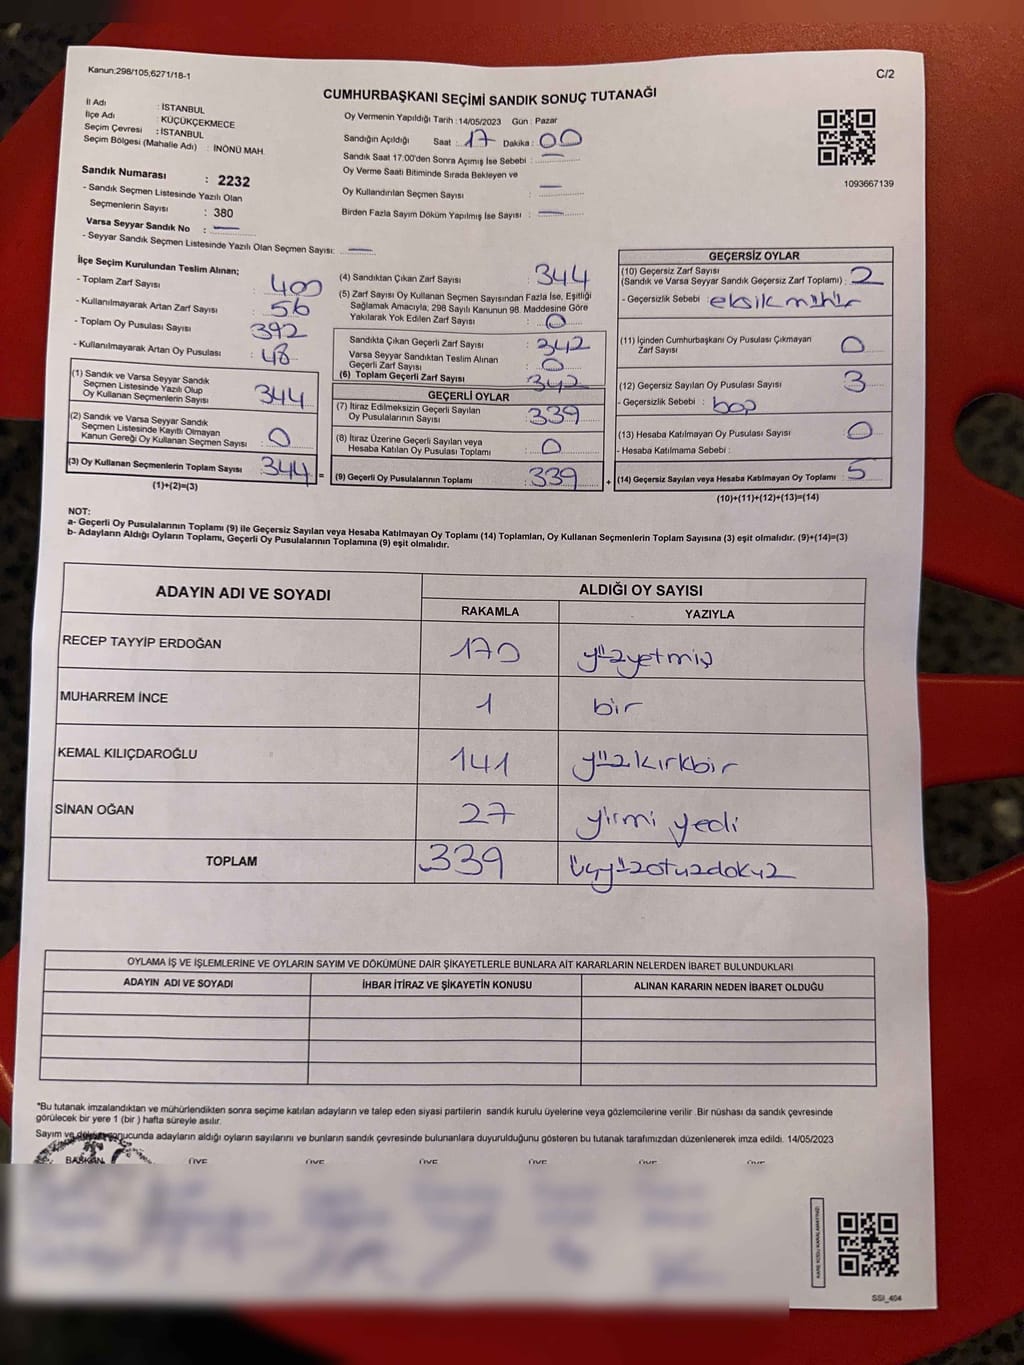 Kanun;298/105;6271/18-1
C/2
CUMHURBAŞKANI SEÇİMİ SANDIK SONUÇ TUTANAĞI
İl Adı : İSTANBUL
İlçe Adı : KÜÇÜKÇEKMECE
Seçim Çevresi : İSTANBUL
Seçim Bölgesi (Mahalle Adı) : İNÖNÜ MAH.
Sandık Numarası : 2232
- Sandık Seçmen Listesinde Yazılı Olan
Seçmenlerin Sayısı : 380
Varsa Seyyar Sandık No : —
- Seyyar Sandık Seçmen Listesinde Yazılı Olan Seçmen Sayısı: —
Oy Vermenin Yapıldığı Tarih : 14/05/2023 Gün : Pazar
Sandığın Açıldığı Saat : 17 Dakika : 00
Sandık Saat 17:00'den Sonra Açımış İse Sebebi : —
Oy Verme Saati Bitiminde Sırada Bekleyen ve
Oy Kullandırılan Seçmen Sayısı : —
Birden Fazla Sayım Döküm Yapılmış İse Sayısı : —
1093667139
İlçe Seçim Kurulundan Teslim Alınan;
- Toplam Zarf Sayısı : 400
- Kullanılmayarak Artan Zarf Sayısı : 56
- Toplam Oy Pusulası Sayısı : 392
- Kullanılmayarak Artan Oy Pusulası : 48
(1) Sandık ve Varsa Seyyar Sandık
Seçmen Listesinde Yazılı Olup
Oy Kullanan Seçmenlerin Sayısı : 344
(2) Sandık ve Varsa Seyyar Sandık
Seçmen Listesinde Kayıtlı Olmayan
Kanun Gereği Oy Kullanan Seçmen Sayısı : 0
(3) Oy Kullanan Seçmenlerin Toplam Sayısı : 344 =
(1)+(2)=(3)
(4) Sandıktan Çıkan Zarf Sayısı : 344
(5) Zarf Sayısı Oy Kullanan Seçmen Sayısından Fazla İse, Eşitliği
Sağlamak Amacıyla; 298 Sayılı Kanunun 98. Maddesine Göre
Yakılarak Yok Edilen Zarf Sayısı : 0
Sandıkta Çıkan Geçerli Zarf Sayısı : 342
Varsa Seyyar Sandıktan Teslim Alınan
Geçerli Zarf Sayısı : 0
(6) Toplam Geçerli Zarf Sayısı : 342
GEÇERLİ OYLAR
(7) İtiraz Edilmeksizin Geçerli Sayılan
Oy Pusulalarının Sayısı : 339
(8) İtiraz Üzerine Geçerli Sayılan veya
Hesaba Katılan Oy Pusulası Toplamı : 0
(9) Geçerli Oy Pusulalarının Toplamı : 339 +
GEÇERSİZ OYLAR
(10) Geçersiz Zarf Sayısı
(Sandık ve Varsa Seyyar Sandık Geçersiz Zarf Toplamı) : 2
- Geçersizlik Sebebi : eksik mühür
(11) İçinden Cumhurbaşkanı Oy Pusulası Çıkmayan
Zarf Sayısı : 0
(12) Geçersiz Sayılan Oy Pusulası Sayısı : 3
- Geçersizlik Sebebi : boş
(13) Hesaba Katılmayan Oy Pusulası Sayısı : 0
- Hesaba Katılmama Sebebi :
(14) Geçersiz Sayılan veya Hesaba Katılmayan Oy Toplamı : 5
(10)+(11)+(12)+(13)=(14)
NOT:
a- Geçerli Oy Pusulalarının Toplamı (9) ile Geçersiz Sayılan veya Hesaba Katılmayan Oy Toplamı (14) Toplamları, Oy Kullanan Seçmenlerin Toplam Sayısına (3) eşit olmalıdır. (9)+(14)=(3)
b- Adayların Aldığı Oyların Toplamı, Geçerli Oy Pusulalarının Toplamına (9) eşit olmalıdır.
ADAYIN ADI VE SOYADI ALDIĞI OY SAYISI
RAKAMLA YAZIYLA
RECEP TAYYİP ERDOĞAN 170 yüzyetmiş
MUHARREM İNCE 1 bir
KEMAL KILIÇDAROĞLU 141 yüzkırkbir
SİNAN OĞAN 27 yirmi yedi
TOPLAM 339 üçyüzotuzdokuz
OYLAMA İŞ VE İŞLEMLERİNE VE OYLARIN SAYIM VE DÖKÜMÜNE DAİR ŞİKAYETLERLE BUNLARA AİT KARARLARIN NELERDEN İBARET BULUNDUKLARI
ADAYIN ADI VE SOYADI İHBAR İTİRAZ VE ŞİKAYETİN KONUSU ALINAN KARARIN NEDEN İBARET OLDUĞU
*Bu tutanak imzalandıktan ve mühürlendikten sonra seçime katılan adayların ve talep eden siyasi partilerin sandık kurulu üyelerine veya gözlemcilerine verilir. Bir nüshası da sandık çevresinde
görülecek bir yere 1 (bir ) hafta süreyle asılır.
Sayım ve döküm sonucunda adayların aldığı oyların sayılarını ve bunların sandık çevresinde bulunanlara duyurulduğunu gösteren bu tutanak tarafımızdan düzenlenerek imza edildi. 14/05/2023
BAŞKAN ÜYE ÜYE ÜYE ÜYE ÜYE ÜYE
KARE KODU KARALAMAYINIZ!
SSI_404